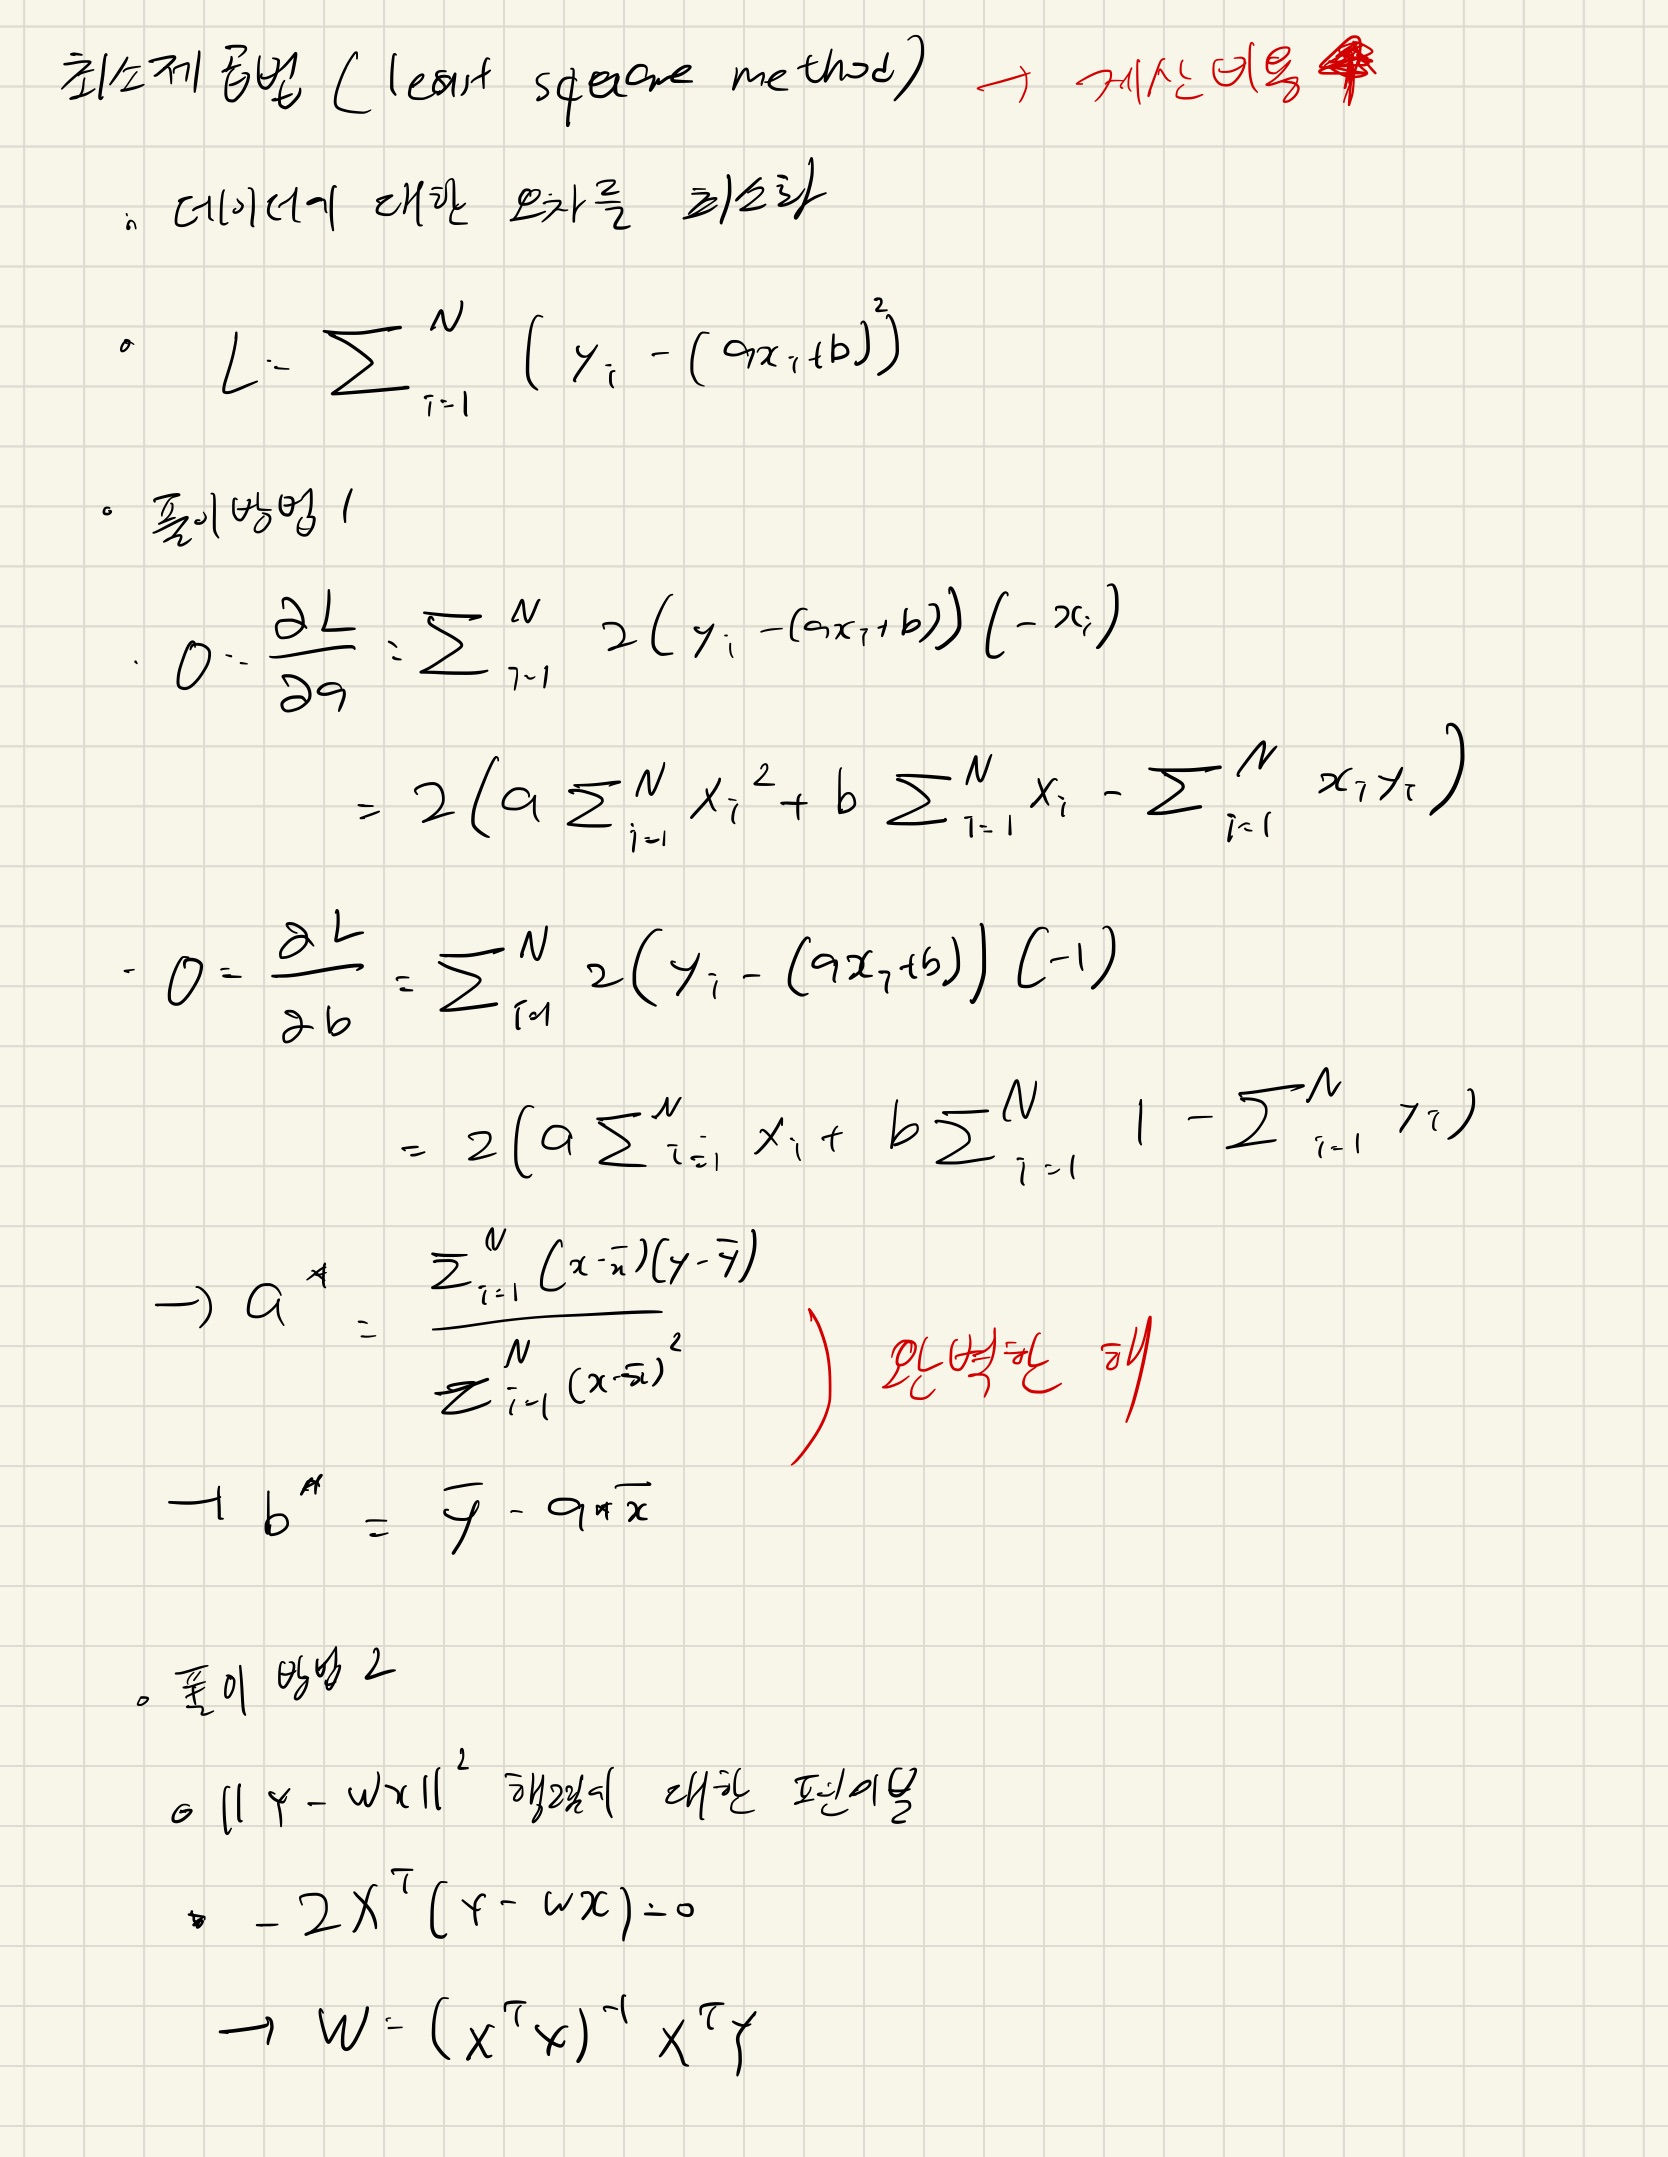 최소제곱법 (least square method) → 계산비용 ↑
: 데이터에 대한 오차를 최소화
∘ L = ∑_{i=1}^{N} (y_i - (ax_i+b)^2)
∘ 풀이방법 1
· 0 = ∂L/∂a = ∑_{i=1}^{N} 2(y_i - (ax_i+b))(-x_i)
= 2(a ∑_{i=1}^{N} x_i^2 + b ∑_{i=1}^{N} x_i - ∑_{i=1}^{N} x_i y_i)
- 0 = ∂L/∂b = ∑_{i=1}^{N} 2(y_i - (ax_i+b))(-1)
= 2(a ∑_{i=1}^{N} x_i + b ∑_{i=1}^{N} 1 - ∑_{i=1}^{N} y_i)
→ a* = ∑_{i=1}^{N} (x-x̄)(y-ȳ) / ∑_{i=1}^{N} (x-x̄)^2
) 완벽한 해
→ b* = ȳ - a*x̄
∘ 풀이 방법 2
∘ ||Y - WX||^2 행렬에 대한 편미분
• -2X^T(Y - WX) = 0
→ W = (X^T X)^{-1} X^T Y